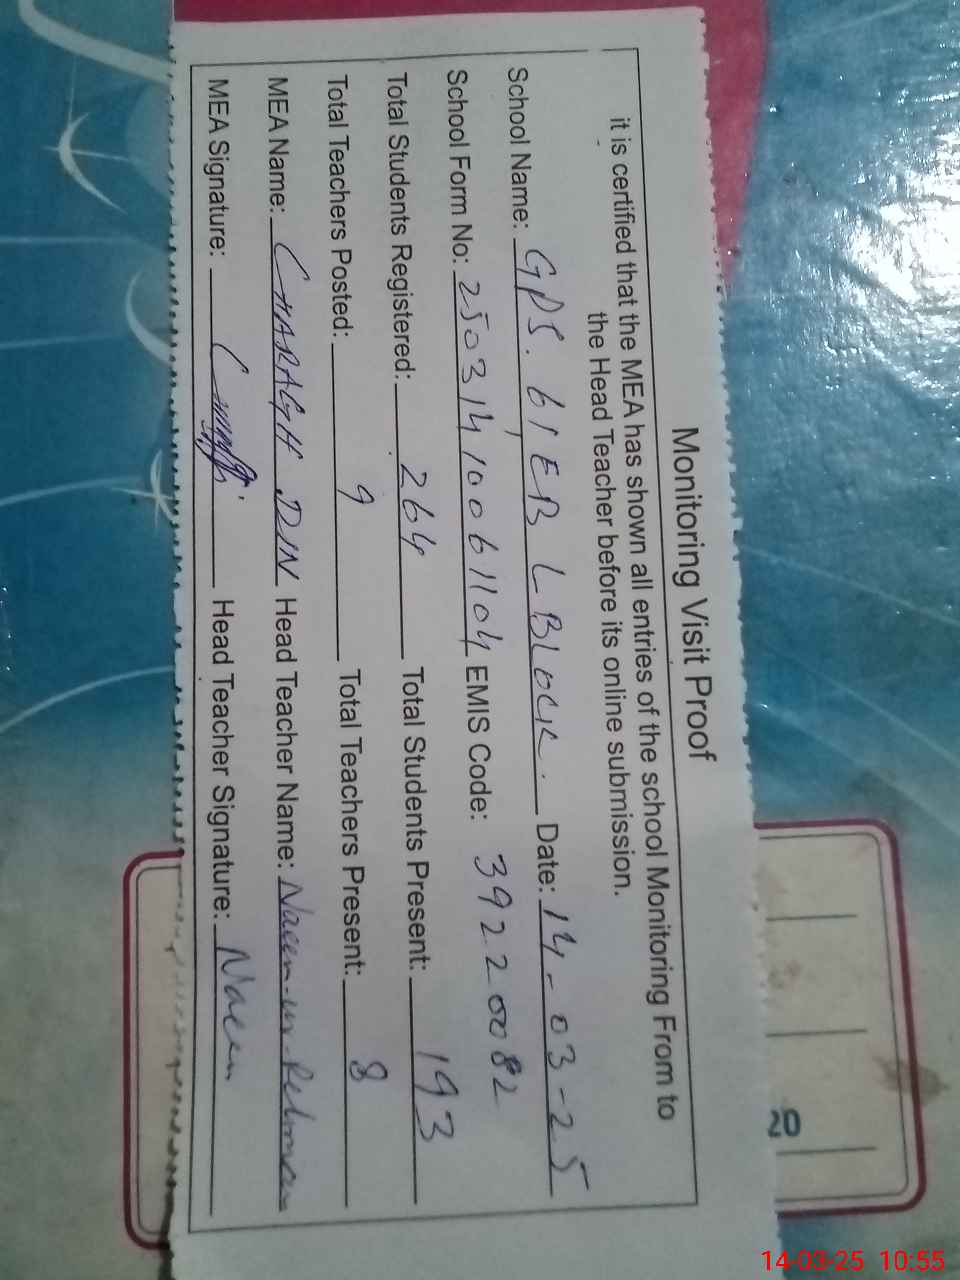 Monitoring Visit Proof
it is certified that the MEA has shown all entries of the school Monitoring From to
the Head Teacher before its online submission.
School Name: GPS. 61EB L BLOCK. Date: 14-03-25
School Form No: 25031410061104 EMIS Code: 39220082
Total Students Registered: 264 Total Students Present: 193
Total Teachers Posted: 9 Total Teachers Present: 8
MEA Name: CHARAGH DIN Head Teacher Name: Naeem-ur-Rehman
MEA Signature: Head Teacher Signature: Naeem
20
14-03-25 10:55